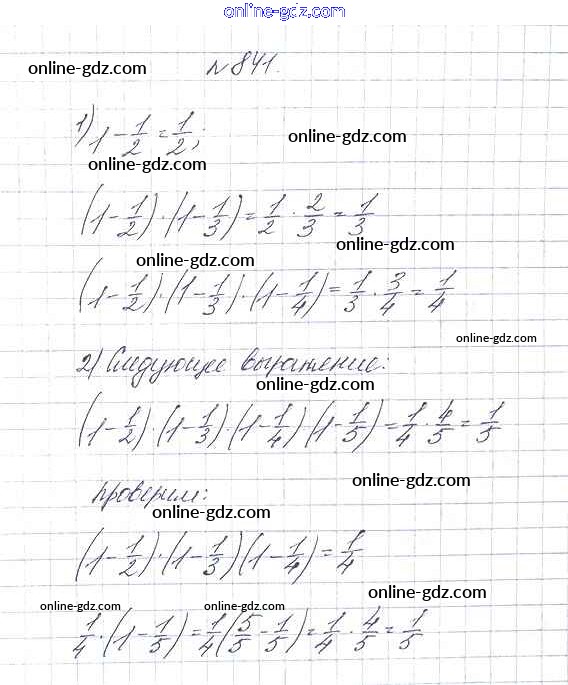 online-gdz.com
online-gdz.com
№ 841.
1) 1 - 1/2 = 1/2;
online-gdz.com
online-gdz.com
(1 - 1/2) · (1 - 1/3) = 1/2 · 2/3 = 1/3
online-gdz.com
online-gdz.com
(1 - 1/2) · (1 - 1/3) · (1 - 1/4) = 1/3 · 3/4 = 1/4
online-gdz.com
2) Следующее выражение:
online-gdz.com
(1 - 1/2) · (1 - 1/3) · (1 - 1/4) (1 - 1/5) = 1/4 · 4/5 = 1/5
online-gdz.com
проверим:
online-gdz.com
(1 - 1/2) · (1 - 1/3) (1 - 1/4) = 1/4
online-gdz.com
online-gdz.com online-gdz.com
1/4 · (1 - 1/5) = 1/4 (5/5 - 1/5) = 1/4 · 4/5 = 1/5